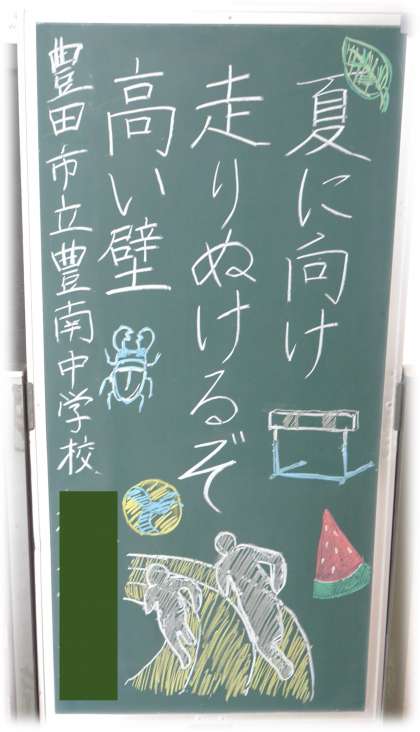 夏に向け
走りぬけるぞ
高い壁
豊田市立豊南中学校